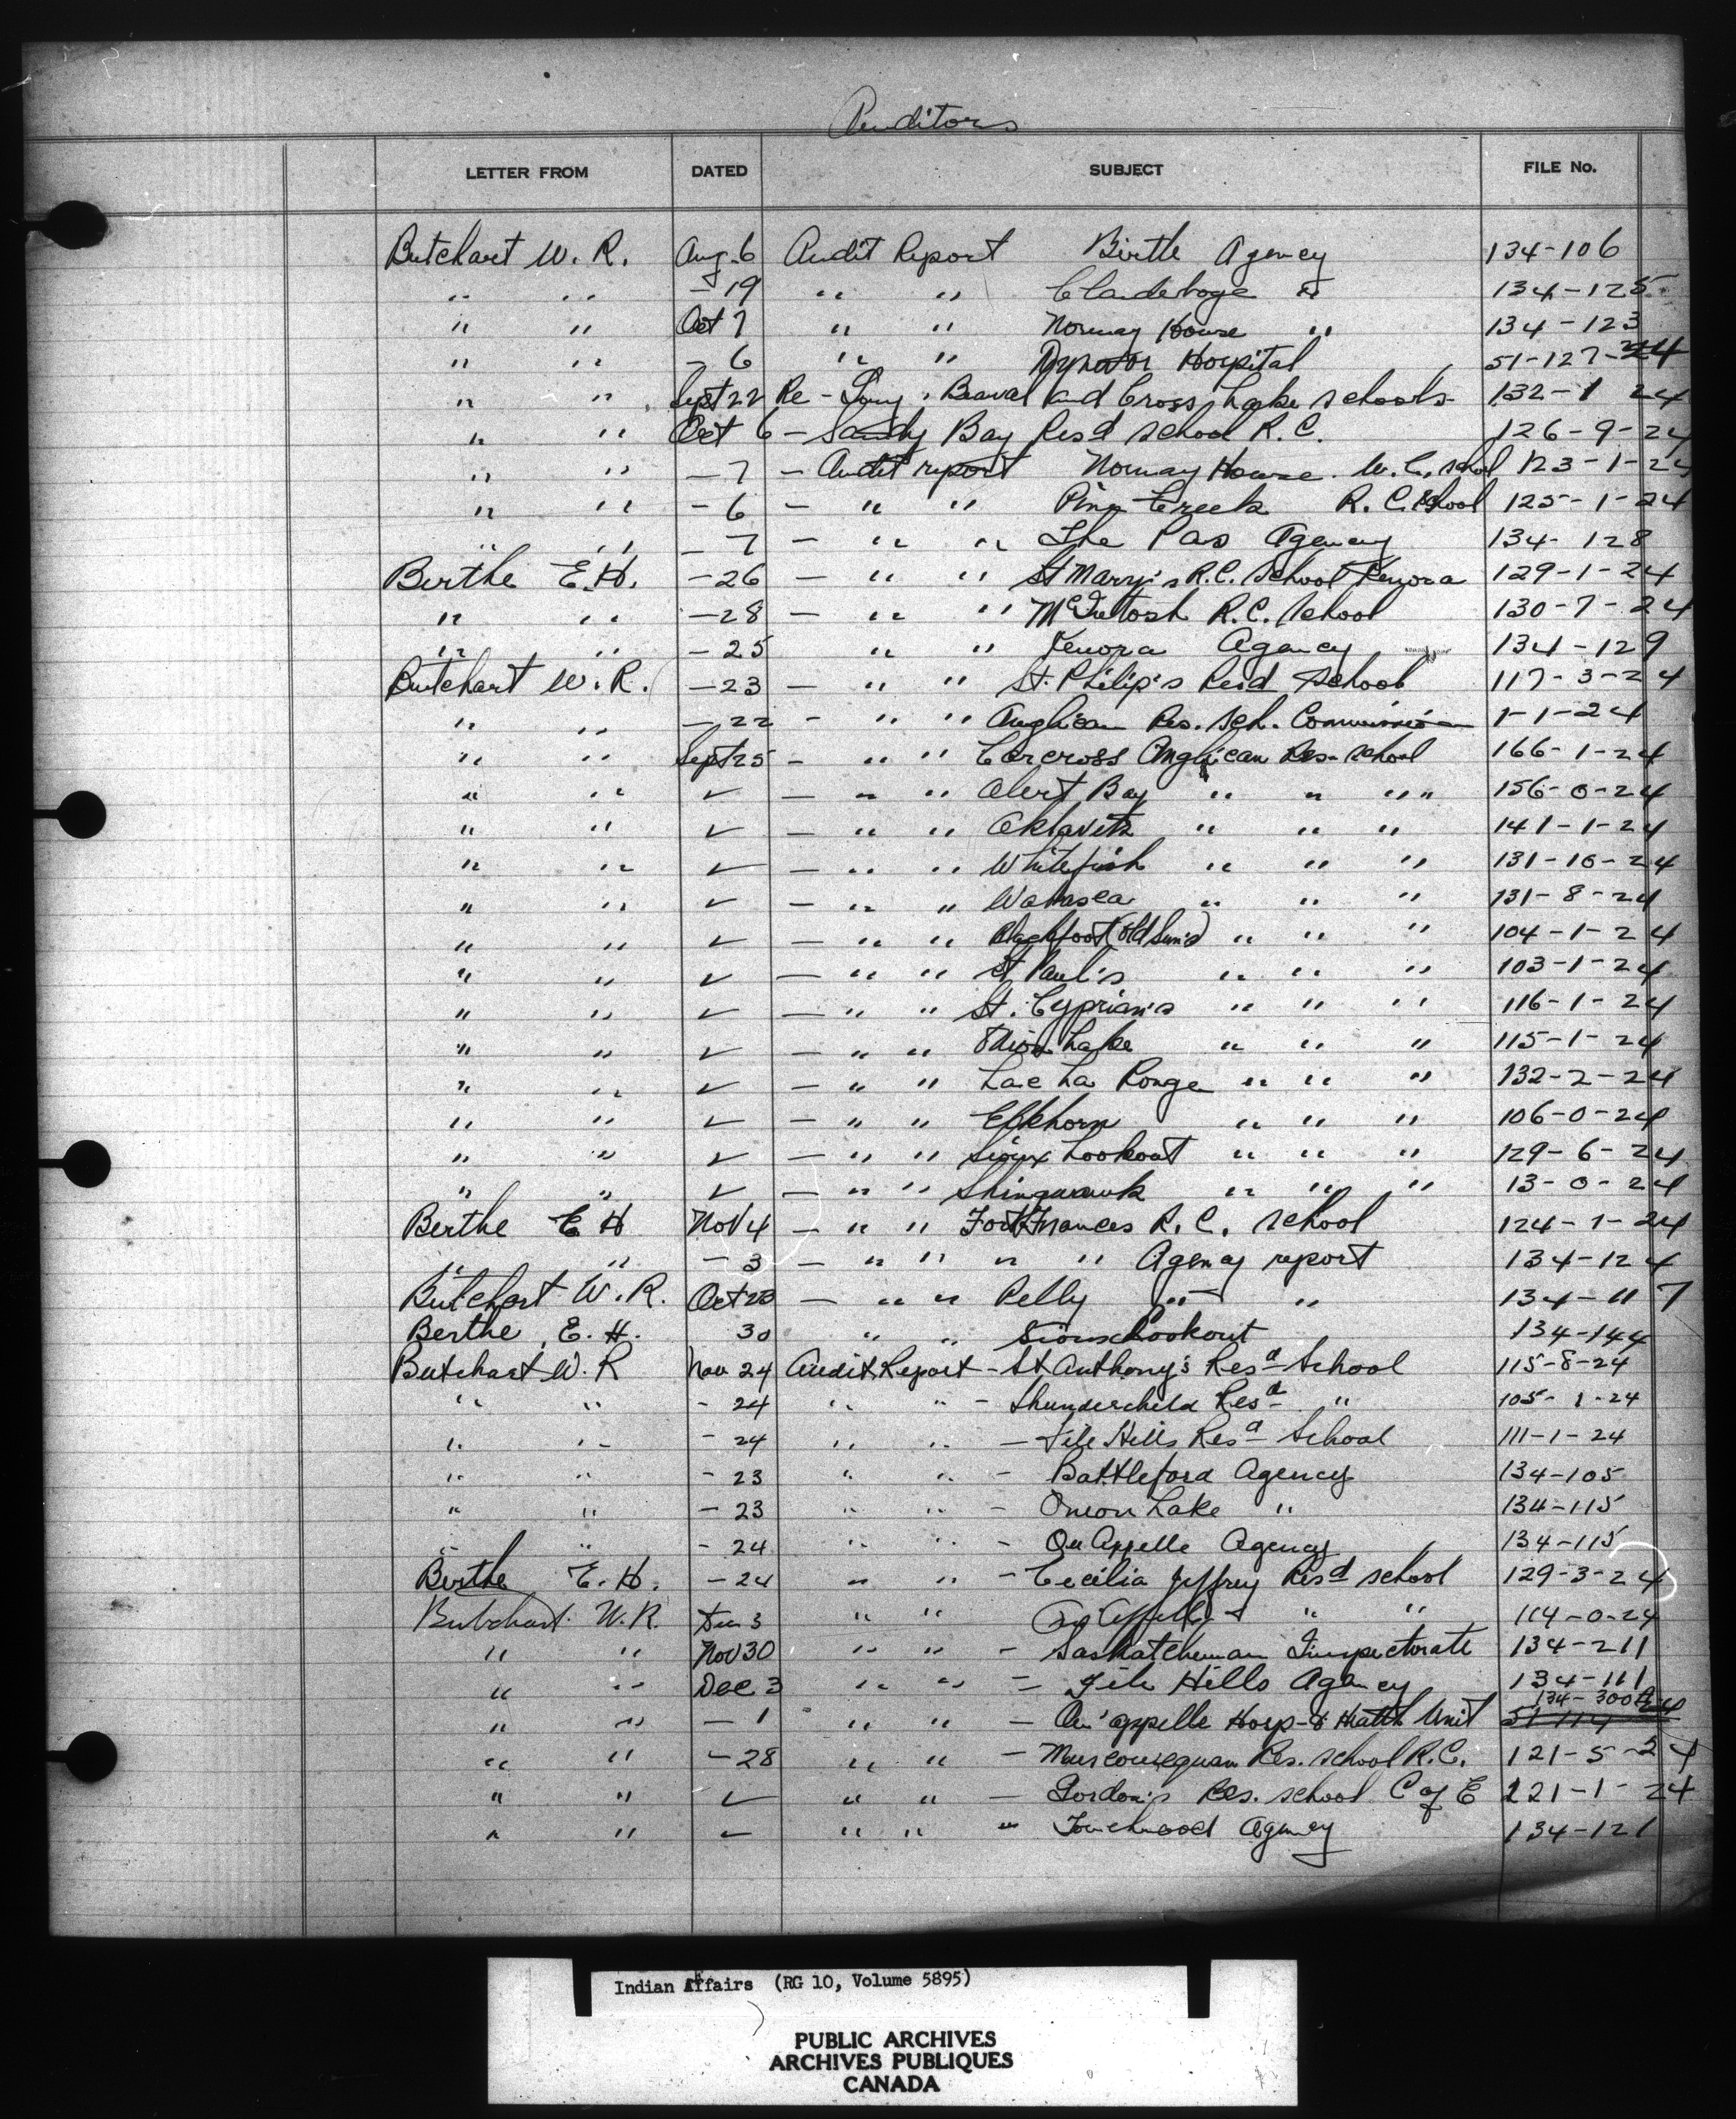 Auditors
LETTER FROM DATED SUBJECT FILE No.
Butchart W. R. Aug. 6 Audit Report Birtle Agency 134-106
" " -19 " " Clandeboye " 134-125
" " Oct 7 " " Norway House " 134-123
" " - 6 " " Dynevor Hospital 51-127-24
" " Sept 22 Re - , Beauval and Cross Lake schools- 132-1 24
" " Oct 6 - Sandy Bay Resd school R. C. 126-9-24
" " - 7 - Audit report Norway House. U. C. school 123-1-24
" " - 6 - " " Pine Creek R. C. School 125-1-24
" " - 7 - " " The Pas Agency 134-128
Berthe E. H. -26 - " " St Mary's R. C. School Kenora 129-1-24
" " -28 - " " McIntosh R. C. School 130-7-24
" " -25 " " Kenora Agency 134-129
Butchart W. R. -23 - " " St. Philip's Resd School 117-3-24
" " -22 - " " Anglican Res. Sch. Commission 1-1-24
" " Sept 25 - " " Carcross Anglican Res. school 166-1-24
" " ✓ - " " Alert Bay " " " " 156-0-24
" " ✓ - " " Aklavik " " " 141-1-24
" " ✓ - " " Whitefish " " " 131-10-24
" " ✓ - " " Wabasca " " " 131-8-24
" " ✓ - " " Blackfoot (Old Sun's) " " " 104-1-24
" " ✓ - " " St Paul's " " " 103-1-24
" " ✓ - " " St. Cyprian's " " " 116-1-24
" " ✓ - " " Onion Lake " " " 115-1-24
" " ✓ - " " Lac La Ronge " " " 132-2-24
" " ✓ - " " Elkhorn " " " 106-0-24
" " ✓ - " " Sioux Lookout " " " 129-6-24
" " ✓ - " " Shingwauk " " " 13-0-24
Berthe E H Nov 4 - " " Fort Frances R. C. School 124-1-24
" " - 3 - " " " " Agency report 134-124
Butchart W. R. Oct 23 - " " Pelly " " 134-117
Berthe, E. H. 30 " " Sioux Lookout 134-144
Butchart W. R Nov 24 Audit Report - St Anthony's Resd School 115-8-24
" " - 24 " " - Thunderchild Resd " 105-1-24
" " - 24 " " - File Hills Resd School 111-1-24
" " - 23 " " - Battleford Agency 134-105
" " - 23 " " - Onion Lake " 134-115
" " - 24 " " - Qu Appelle Agency 134-115
Berthe E. H. - 24 " " - Cecilia Jeffrey Resd school 129-3-24
Butchart W. R. Dec 3 " " Qu'Appelle " " 114-0-24
" " Nov 30 " " - Saskatchewan Inspectorate 134-211
" " Dec 3 " " - File Hills Agency 134-111
134-300
" " - 1 " " - Qu'appelle Hosp- & Health Unit 51-114
" " - 28 " " - Muscowequan Res. school R. C. 121-5-24
" " ✓ " " - Gordon's Res. school C of E 221-1-24
" " ✓ " " - Touchwood Agency 134-121
Indian Affairs (RG 10, Volume 5895)
PUBLIC ARCHIVES
ARCHIVES PUBLIQUES
CANADA